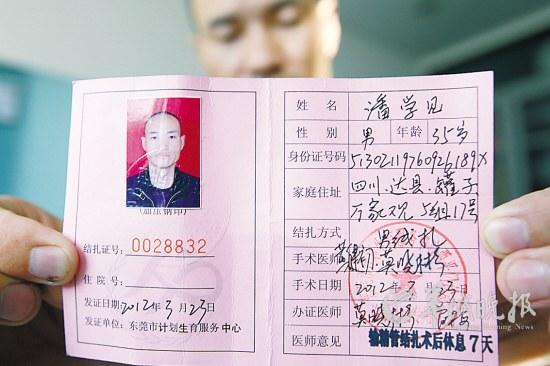 (加压钢印)
结扎证号: 0028832
住院号:
发证日期: 2012年3月23日
发证单位: 东莞市计划生育服务中心
姓名 潘学见
性别 男 年龄 35岁
身份证号码 51302119760926189X
家庭住址 四川.达县.罐子
万家 5组17号
结扎方式 男结扎
手术医师 莫晓彬
手术日期 2012年3月23日
办证医师 莫晓彬
医师意见 输精管结扎术后休息7天
晚报
ning News